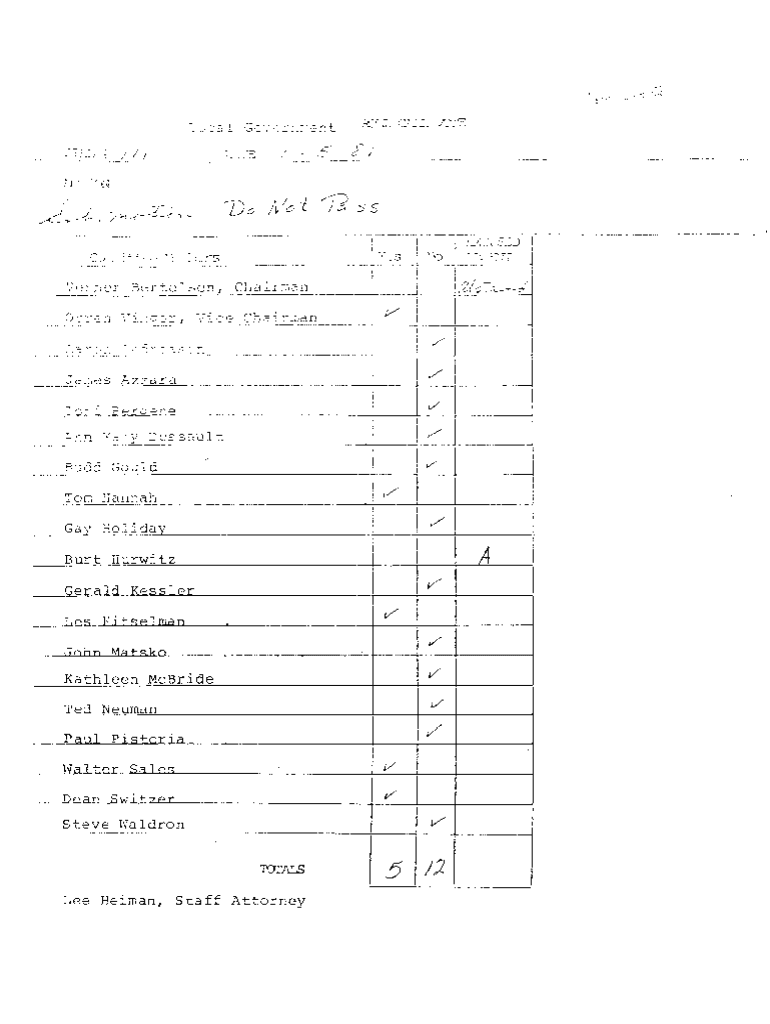 Local Government
Do Not Pass
Yes No
Verner Bertelsen, Chairman
Orren Vinger, Vice Chairman ✓
✓
James Azzara ✓
Toni Bergene ✓
Ann Mary Dussault ✓
Budd Gould ✓
Tom Hannah ✓
Gay Holiday ✓
Burt Hurwitz A
Gerald Kessler ✓
Les Kitselman ✓
John Matsko ✓
Kathleen McBride ✓
Ted Neuman ✓
Paul Pistoria ✓
Walter Sales ✓
Dean Switzer ✓
Steve Waldron ✓
TOTALS 5 12
Lee Heiman, Staff Attorney